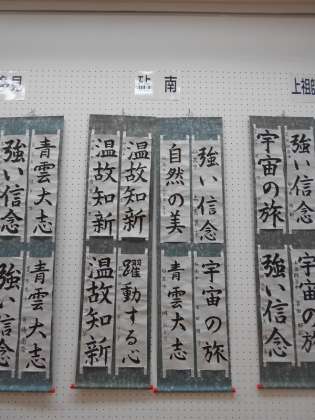 南
上祖師
青雲大志
強い信念
青雲大志
強い信念
温故知新
温故知新
躍動する心
温故知新
強い信念
自然の美
宇宙の旅
青雲大志
強い信念
宇宙の旅
宇宙の旅
強い信念